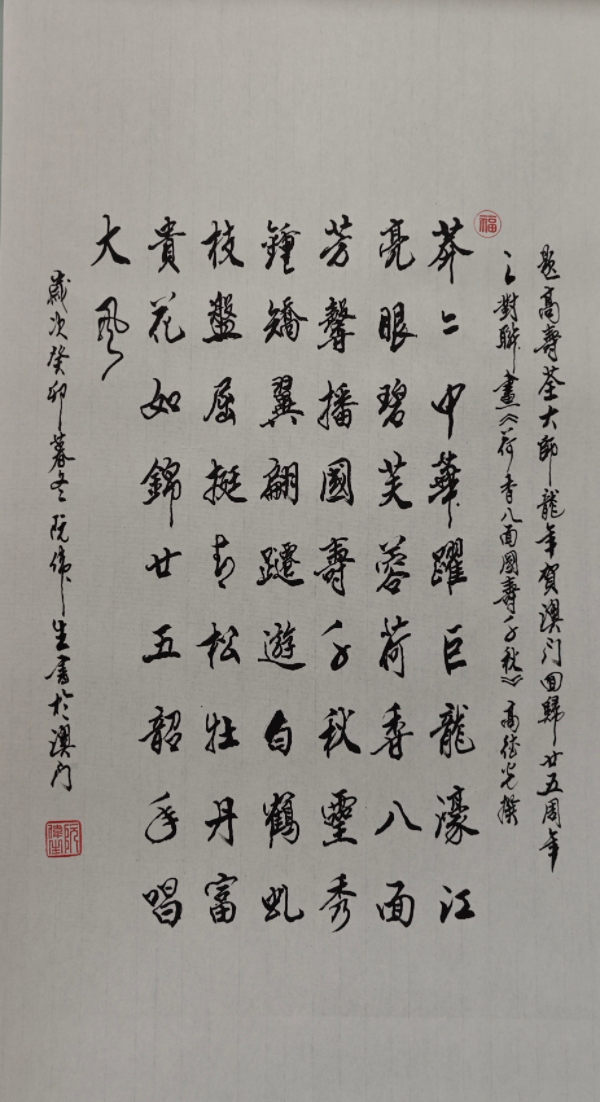 題高壽荃大師龍年賀澳门回歸廿五周年
之對聯畫《荷香八面國壽千秋》高德光撰
福
莽〻中華躍巨龍濠江
亮眼碧芙蓉荷香八面
芳馨播國壽千秋靈秀
鍾矯翼翩躚遊白鶴虬
枝盤屈挺青松牡丹富
貴花如錦廿五韶年唱
大風
歲次癸卯暮冬阮偉生書於澳门
阮偉生